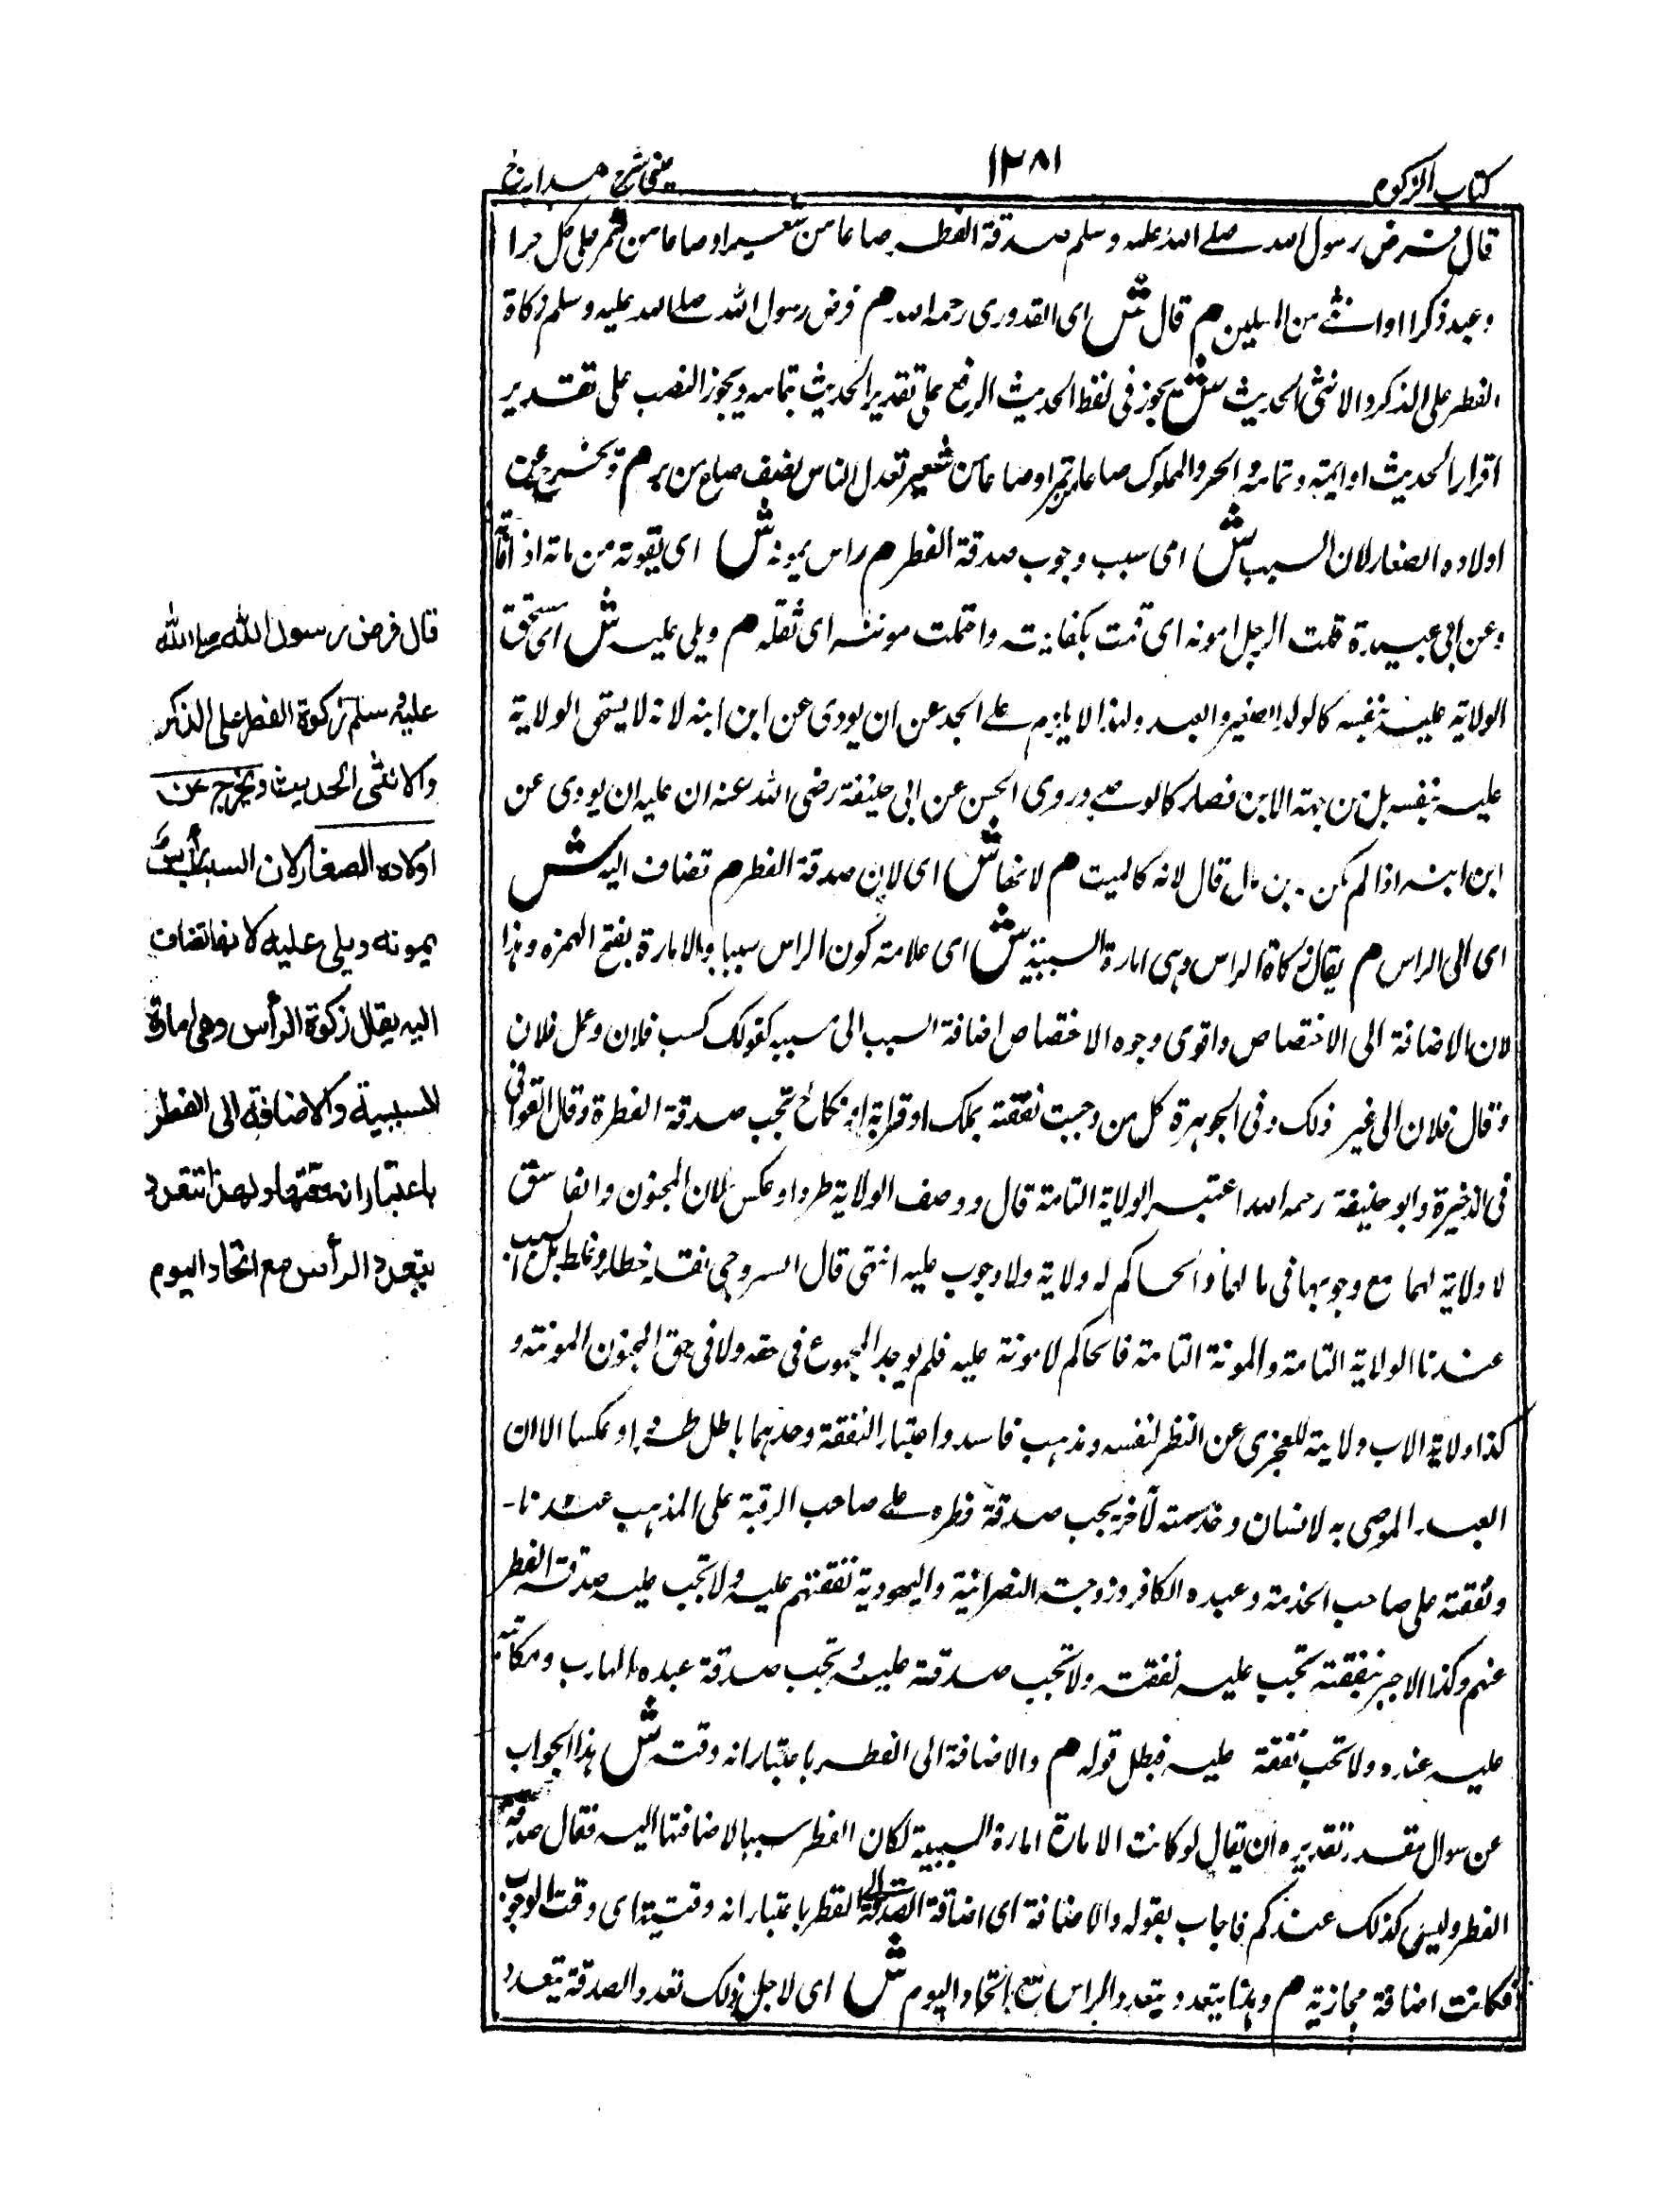 كتاب الزكوة
١٢٨١
عينى شرح هدايه ج
قال فرض رسول الله صلے اللہ علیہ وسلم صدقة الفطر صاعا من شعير او صاعا من تمر على كل حر ا
وعبد ذكرا او انثے من المسلمين م قال ش اى القدورى رحمه الله م فرض رسول الله صلے الله عليه وسلم زكاة
الفطر على الذكر والانثى الحديث ش يجوز فى لفظ الحديث الرفع على تقدير الحديث بتمامه ويجوز النصب على تقدير
اقرار الحديث او اتمه وتمامه والحر والمملوك صاعا من تمر او صاعا من شعير تعدل الناس نصف صاع من بر م ويخرج عن
اولاده الصغار لان السبب ش اى سبب وجوب صدقة الفطر م راس يمونه ش اى يقوته من مانه اذا قاته
وعن ابى عبيدة قلت الرجل امونه اى قمت بكفايته واحتملت مونته اى ثقله م ويلى عليه ش اى يستحق
الولاية عليه بنفسه كالولد الصغير والعبد ولهذا لا يلزم علے الجد عن ان يودى عن ابن ابنه لانه لا يستحق الولاية
عليه بنفسه بل من جهة الابن فصار كالوصے وروى الحسن عن ابى حنيفة رضى الله عنه ان عليه ان يودى عن
ابن ابنه اذا لم يكن من مال قال لانه كالميت م لانها ش اى لان صدقة الفطر م تضاف اليه ش
اى الى الراس م يقال زكاة الراس وهى امارة السببية ش اى علامة كون الراس سببا والامارة بفتح الهمزه وهذا
لان الاضافة الى الاختصاص واقوى وجوه الاختصاص اضافة السبب الى مسببه كقولك كسب فلان وعمل فلان
وقال فلان الى غير ذلك وفى الجوهرة كل من وجبت نفقته بملك او قرابة او نكاح تجب صدقة الفطرة وقال القوافى
فى الذخيرة وابو حنيفة رحمه الله اعتبر الولاية التامة قال ووصف الولاية طردا وعكس لان المجنون والفاسق
لا ولاية لهما مع وجوبها فى مالهما والحاكم له ولاية ولا وجوب عليه انتهى قال السروجى نقله خطا وغلط بل السبب
عندنا الولاية التامة والمونة التامة فالحاكم لا مونة عليه فلم يوجد المجموع فى حقه ولا فى حق المجنون المونة و
كذا ولاية الاب ولاية للعجزى عن النظر لنفسه ومذهب فاسد واعتبار النفقة وحدهما باطل طردا وعكسا الا ان
العبد الموصى به لانسان وخدمته لآخر يجب صدقة فطره علے صاحب الرقبة على المذهب عندنا۔
ونفقته على صاحب الخدمة وعبده الكافر وزوجته النصرانية واليهودية نفقتهم عليه ولا تجب عليه صدقة الفطر
عنهم وكذا الاجير بنفقته تجب عليه نفقته ولا تجب صدقة عليه وتجب صدقة عبده الهارب ومكاتبه
عليه عنده ولا تجب نفقة عليه فبطل قوله م والاضافة الى الفطر باعتبار انه وقته ش هذا الجواب
عن سوال مقدر تقديره ان يقال لو كانت الامارة امارة السببية لكان الفطر سببا لاضافتها اليه فقال صدقة
الفطر وليس كذلك عندكم فاجاب بقوله والاضافة اى اضافة الصدقة الى الفطر باعتبار انه وقتيته اى وقت الوجوب
فكانت اضافة مجازية م ولهذا يتعدد بتعدد الراس مع اتحاد اليوم ش اى لاجل ذلك تعدد الصدقة يتعدد
قال فرض رسول الله صلى الله
عليه وسلم زكوة الفطر على الذكر
والانثى الحديث ويخرج عن
اولاده الصغار لان السبب رأس
يمونه ويلى عليه لانها تضاف
اليه يقال زكوة الرأس وهى امارة
السببية والاضافة الى الفطر
باعتبار انه وقتها ولهذا تتعدد
بتعدد الرأس مع اتحاد اليوم